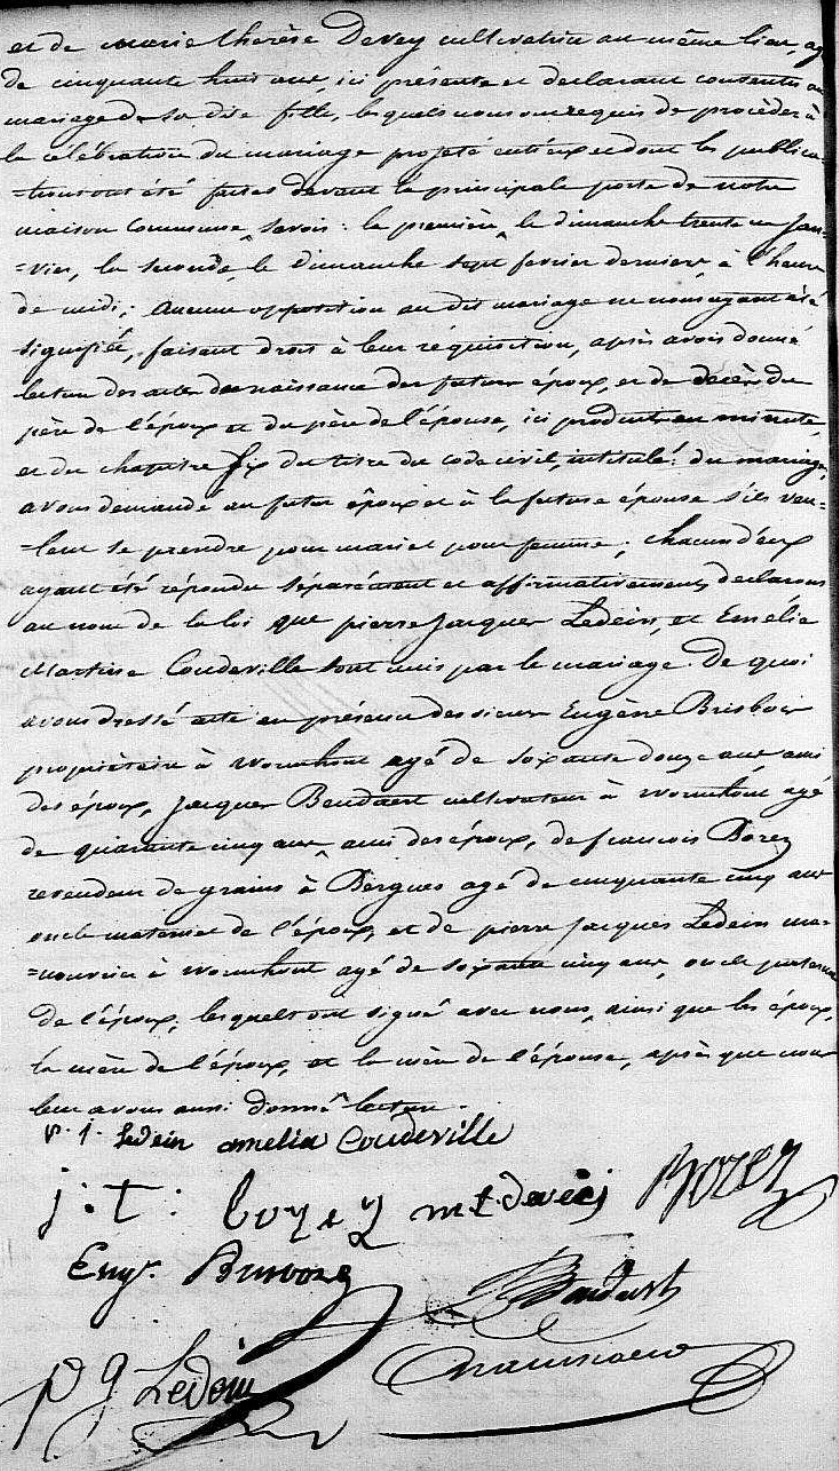 et de marie thérèse Devey cultivatrice au même lieu, ag
de cinquante huit ans, ici présente et déclarant consentir au
mariage de sa dite fille, lesquels nous ont requis de procéder à
la célébration du mariage projeté entr'eux et dont les publica-
-tions ont été faites devant la principale porte de notre
maison Commune, savoir: la première, le dimanche trente un Jan-
-vier, la seconde, le dimanche sept fevrier derniers, à l'heure
de midi; aucune opposition au dit mariage ne nous ayant été
signifiée, faisant droit à leur réquisition, après avoir donné
lecture des actes de naissance des futurs époux, et de décès du
père de l'époux et du père de l'épouse, ici produits en minute,
et du chapitre six du titre du code civil, intitulé: du mariage,
avons demandé au futur époux et à la future épouse s'ils veu-
-lent se prendre pour mari et pour femme; chacun d'eux
ayant été répondu séparément et affirmativement, déclarons
au nom de la loi que pierre Jacques Ledein, et Emélie
Martine Coudeville sont unis par le mariage. De quoi
avons dressé acte en présence des sieurs Eugène Brisboir
propriétaire à wormhout agé de soixante douze ans ami
des époux, Jacques Beudaert cultivateur à wormhout agé
de quarante cinq ans, ami des époux, de francois Borez
revendeur de grains à Bergues agé de cinquante cinq ans
oncle maternel de l'époux, et de pierre Jacques Ledein ma-
-nouvrier à wormhout agé de soixante cinq ans, oncle paternel
de l'époux, lesquels ont signé avec nous, ainsi que les époux,
la mère de l'époux, et la mère de l'épouse, après que nous
leur avons aussi donné lecture.
p. j. ledein amelia Coudeville
j: t: borez m t deveij Borez
Eug.
Baudaert
p J Ledein